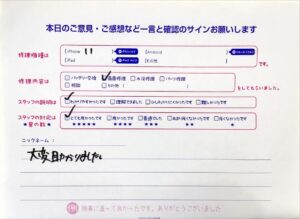 本日のご意見・ご感想など一言と確認のサインお願いします
修理機種は
iPhone 11
Android
iPad
その他
です。
修理内容は
バッテリー交換
画面修理
水没修理
パーツ修理
相談
その他
をしてもらいました。
スタッフの説明は
わかりやすかったです
理解できました
少しわかりにくかったです
難しかったです
スタッフの対応は
★星の数★
とても良かったです
良かったです
普通でした
良くなかったです
ニックネーム：
大変助かりました。
修理に迷ってあかったです。ありがとうございました